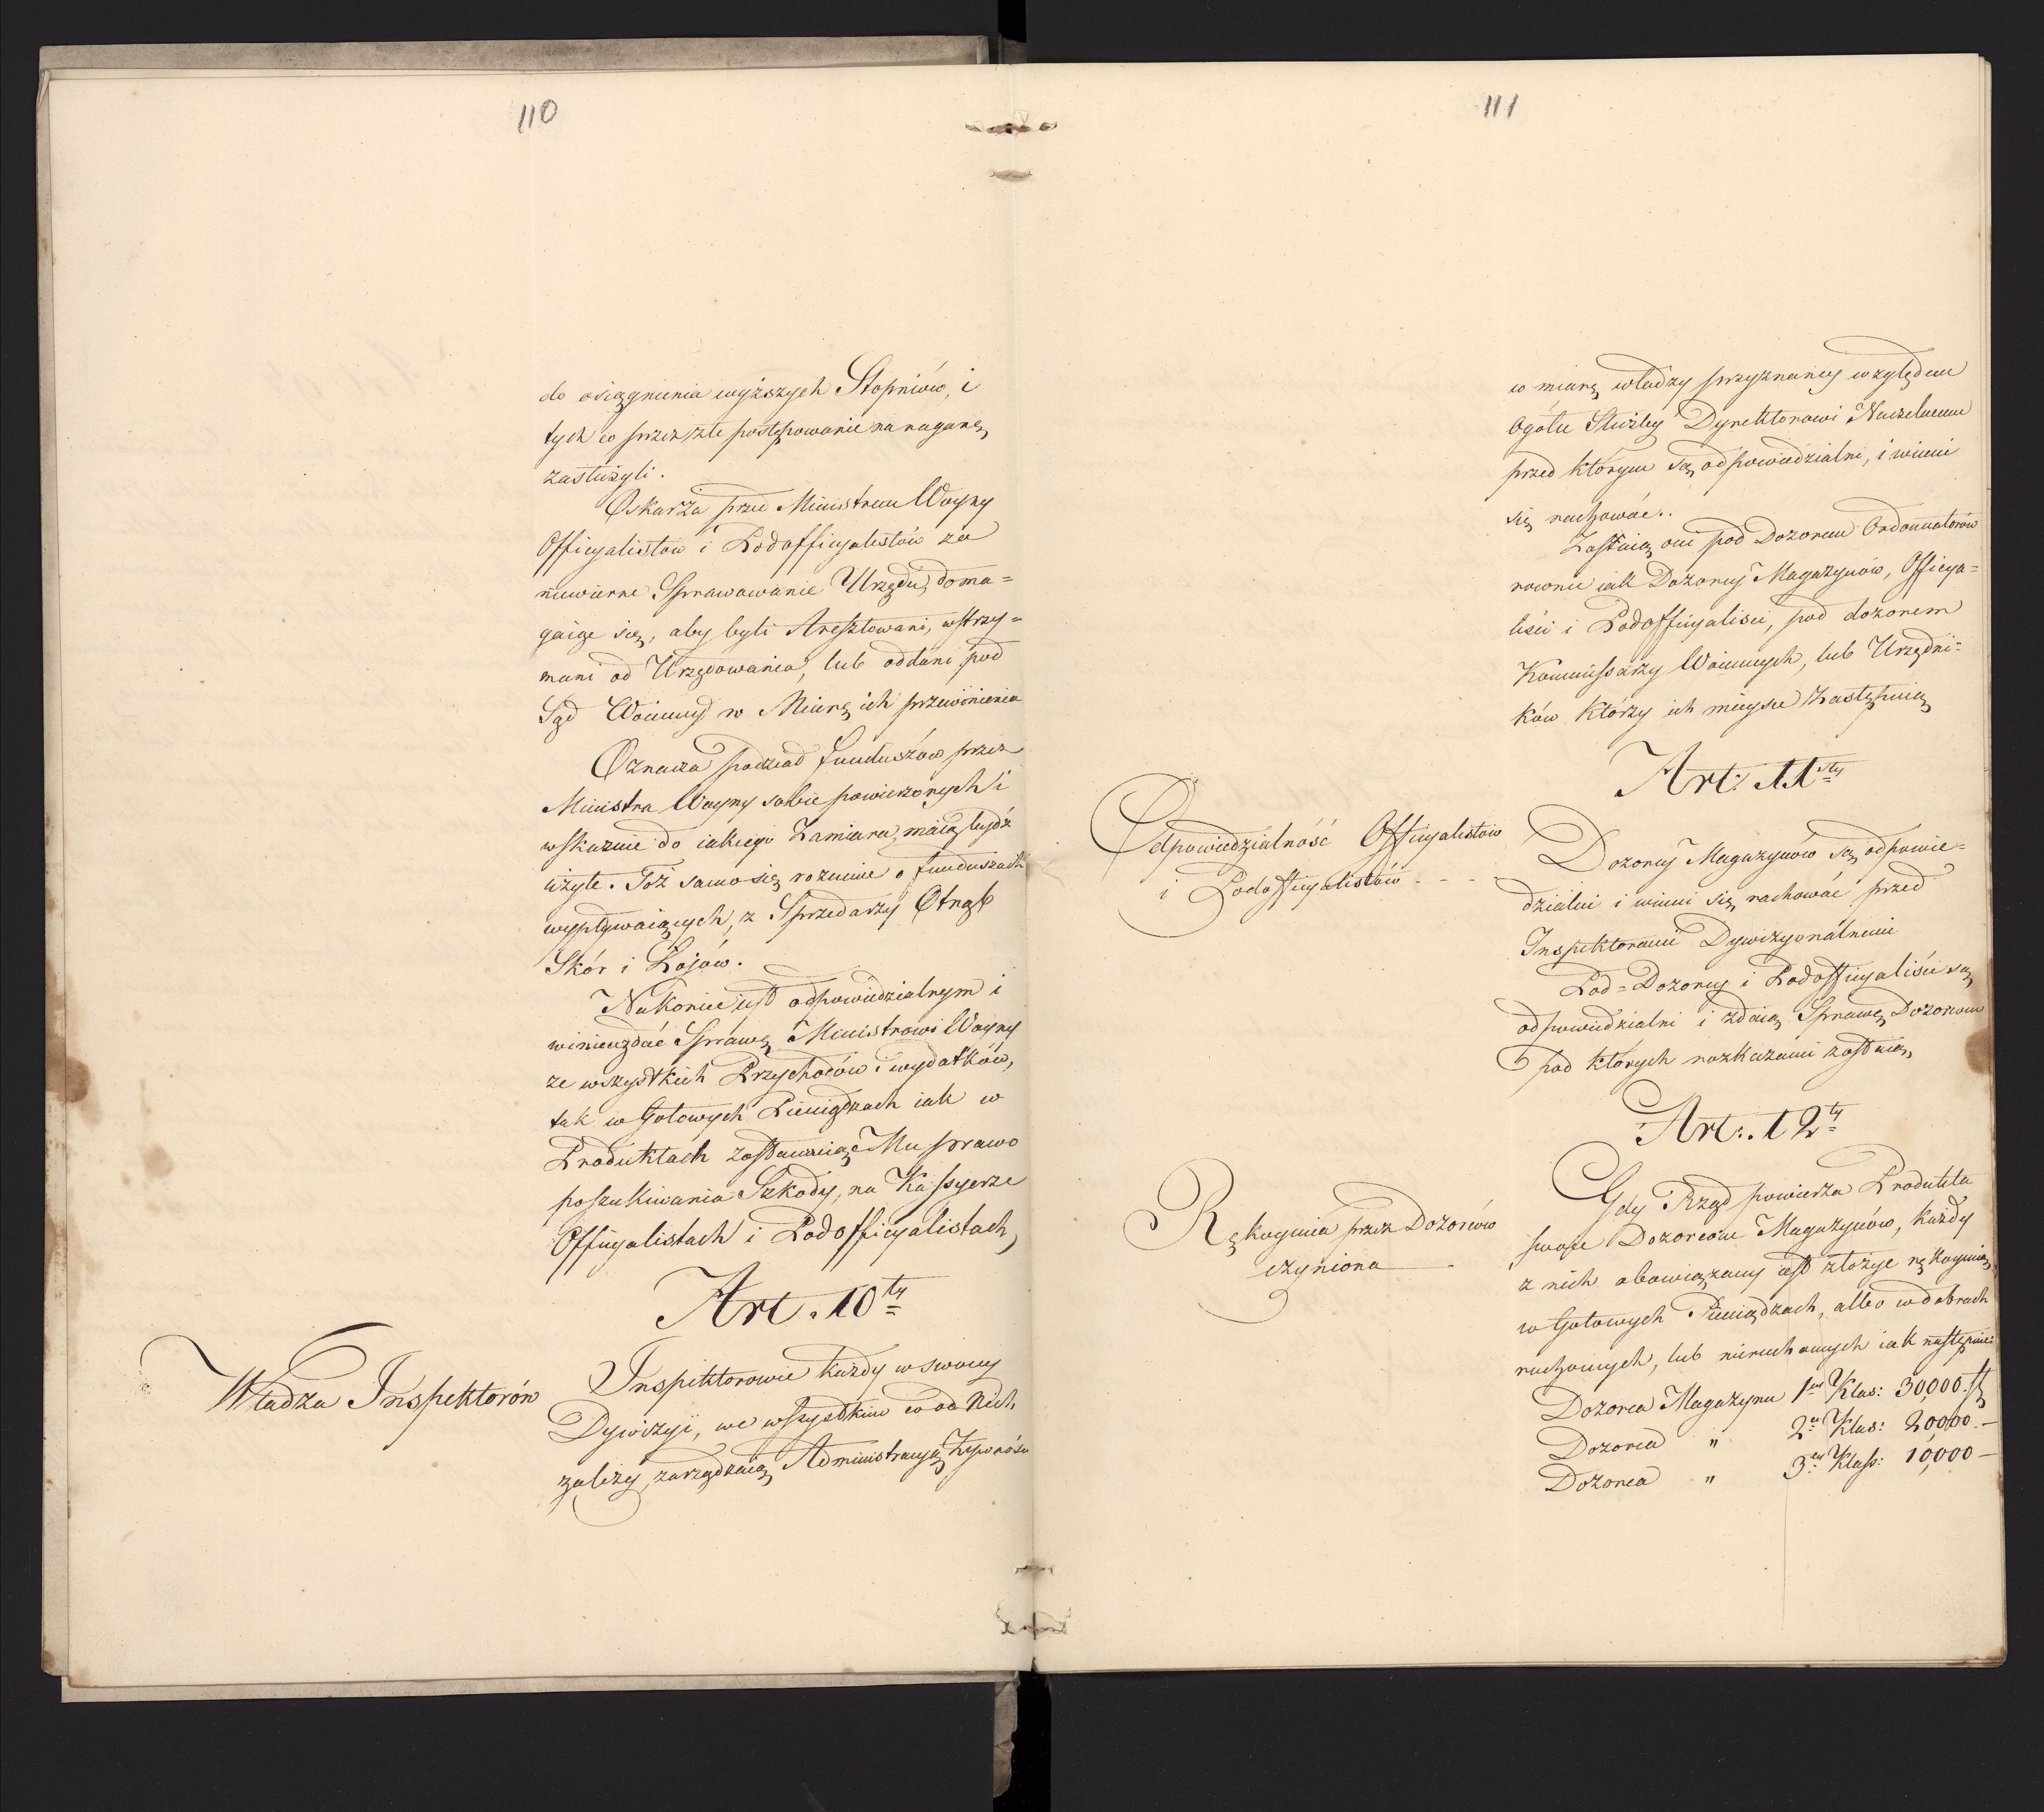 110
do osiągnienia wyższych Stopniów, i
tych co przez złe postępowanie na naganę
zasłużyli.
Oskarża przed Ministrem Woyny
Officyalistow i Podofficyalistów za
niewierne Sprawowanie Urzędu, doma=
gaiąc się, aby byli Aresztowani, wstrzy=
mani od Urzędowania, lub oddani pod
Sąd Woienny w Miarę ich przewinienia
Oznacza podział funduszów przez
Ministra Woyny sobie powierzonych i
wskazuie do iakiego Zamiaru, maią bydź
użyte. Toż samo się rozumie o funduszach
wypływaiących, z Sprzedarzy Otrąb
Skór i Łojów.
Nakoniec iest odpowiedzialnym i
winien zdać Sprawę Ministrowi Woyny
ze wszystkich Przychodów i wydatków,
tak w Gotowych Pieniądzach iak w
Produktach zostawuiąc Mu prawo
poszukiwania Szkody, na Kassyerze
Officyalistach i Podofficyalistach,
Art. 10ty
Władza Inspektorów
Inspektorowie każdy w swoiey
Dywizyi, we wszystkim co od Nich
zależy, zarządzaią Administracyą Żywności
111
w miarę władzy przyznaney względem
Ogółu Służby Dyrektorowi Naczelnemu
przed którym są odpowiedzialni, i winni
się rachować..
Zostaią oni pod Dozorem Ordonnatorów
rownie iak Dozorcy Magazynów, Officya=
liści i Podofficyalisci, pod dozorem
Kommissarzy Woiennych, lub Urzędni=
ków którzy ich mieysce Zastępuią
Art: 11sty
Odpowiedzialność Officyalistów
i Podofficyalistów - - -
Dozorcy Magazynów są odpowie=
dzialni i winni się rachować przed
Inspektorami Dywizyonalnemi
Pod=Dozorcy i Podofficyaliści są
odpowiedzialni i zdaią Sprawę Dozorcom
pod których rozkazami zostaią,
Art:. 12ty
Rękoymia przez Dozorców
czyniona
Gdy Rząd powierza Produkta
swoje Dozorcom Magazynów, każdy
z nich obowiązany iest złożyc rękoymią
w Gotowych Pieniądzach, albo w dobrach
ruchomych, lub nieruchomych iak następuie:
Dozorca Magazynu 1ey Klas: 30,000. fl
Dozorca " 2ey Klas: 20,000. —
Dozorca " 3ey Klass: 10,000 —